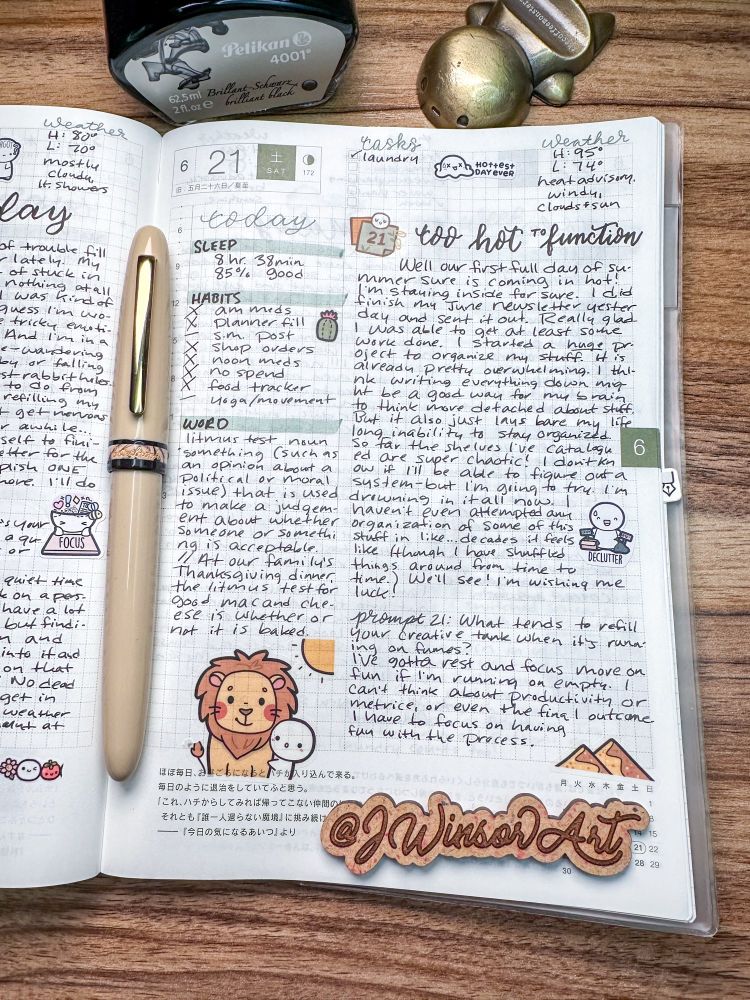 Pelikan
4001®
62,5 ml
2 fl.oz ℮
Brillant-Schwarz
brilliant black
weather
H: 80°
L: 70°
mostly
cloudy,
lt. showers
of trouble fill
lately. My
of stuck in
nothing at all
I was kind of
guess I'm wo-
e tricky emoti-
And I'm in a
-wandering
by or falling
to do, from
refilling my
get nervous
awhile..
self to fini-
etter for the
plish ONE
more. I'll do
FOCUS
quiet time
k on a pers-
have a lot
but findi-
and
into it and
on that
No dead
get in
weather
at
6
21
土
SAT
172
旧 五月二十六日/夏至
today
SLEEP
8 hr. 38min
85% good
HABITS
X am meds
X planner fill
X s.m. post
X shop orders
X noon meds
X no spend
X food tracker
– yoga/movement
WORD
litmus test noun
something (such as
an opinion about a
political or moral
issue) that is used
to make a judgem-
ent about whether
someone or somethi
ng is acceptable.
// At our family's
Thanksgiving dinner,
the litmus test for
good mac and che-
ese is whether or
not it is baked.
tasks
✓ laundry
HOTTEST
DAY EVER
weather
H: 95°
L: 74°
heat advisory,
windy,
clouds+sun
21
too hot to function
Well our first full day of su-
mmer sure is coming in hot!
I'm staying inside for sure. I did
finish my June newsletter yester
day and sent it out. Really glad
I was able to get at least some
work done. I started a huge pr-
oject to organize my stuff. It is
already pretty overwhelming. I thi-
nk writing everything down mig
ht be a good way for my brain
to think more detached about stuff.
But it also just lays bare my life
long inability to stay organized.
So far the shelves I've catalogu
ed are super chaotic! I don't kn
ow if I'll be able to figure out a
system–but I'm going to try. I'm
drowning in it all now. I
haven't even attempted any
organization of some of this
stuff in like...decades it feels
like (though I have shuffled
things around from time to
time.) We'll see! I'm wishing me
luck!
6
DECLUTTER
prompt 21: What tends to refill
your creative tank when it's runn-
ing on fumes?
I've gotta rest and focus more on
fun if I'm running on empty. I
can't think about productivity or
metrics, or even the final outcome
I have to focus on having
fun with the process.
ほぼ毎日、お昼ごろになるとハチが入り込んで来る。
毎日のように退治をしていてふと思う。
「これ、ハチからしてみれば帰ってこない仲間の
それとも『誰一人還らない魔境』に挑み続け
——『今日の気になるあいつ』より
月 火 水 木 金 土 日
1
14 15
21 22
28 29
30
@JWinsorArt